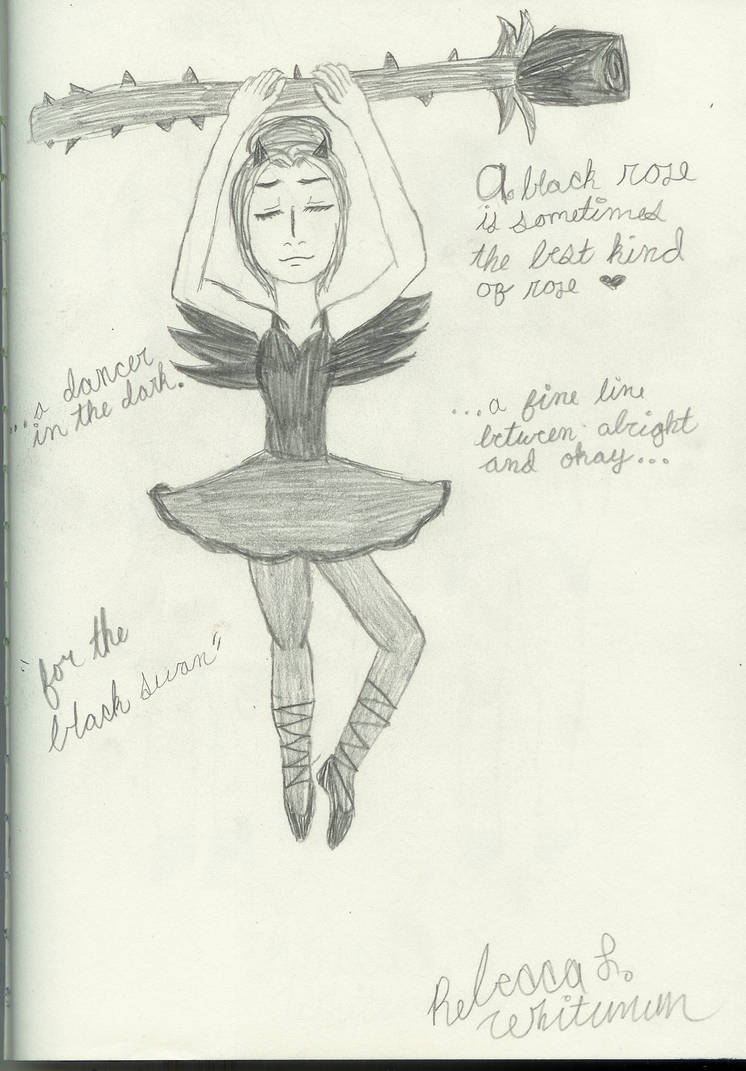 A black rose
is sometimes
the best kind
of rose ♥
...a dancer
in the dark.
...a fine line
between alright
and okay...
"for the
black swan"
Rebecca L.